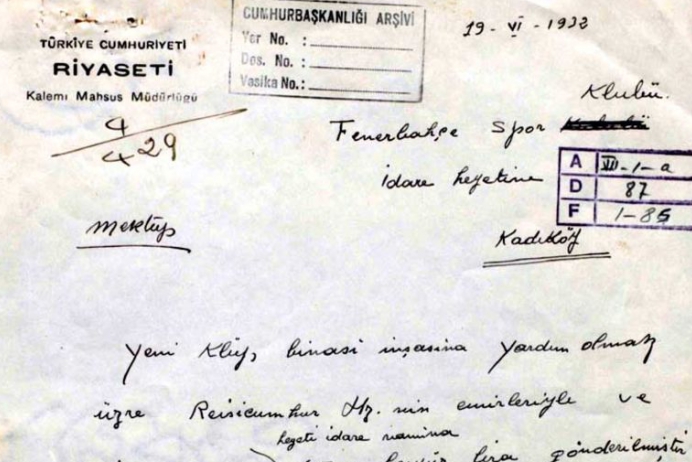 TÜRKİYE CUMHURİYETİ
RİYASETİ
Kalemi Mahsus Müdürlüğü
4
4 29
CUMHURBAŞKANLIĞI ARŞİVİ
Yer No. :
Dos. No. :
Vesika No. :
19 - VI - 1932
Klubü.
Fenerbahçe Spor
idare heyetine
A III-1-a
D 87
F 1-85
Mektup
Kadıköy
Yeni Klüp, binasi inşasina yardım olmak
üzre Reisicumhur Hz. nin emirleriyle ve
heyeti idare namina
lira gönderilmiştir